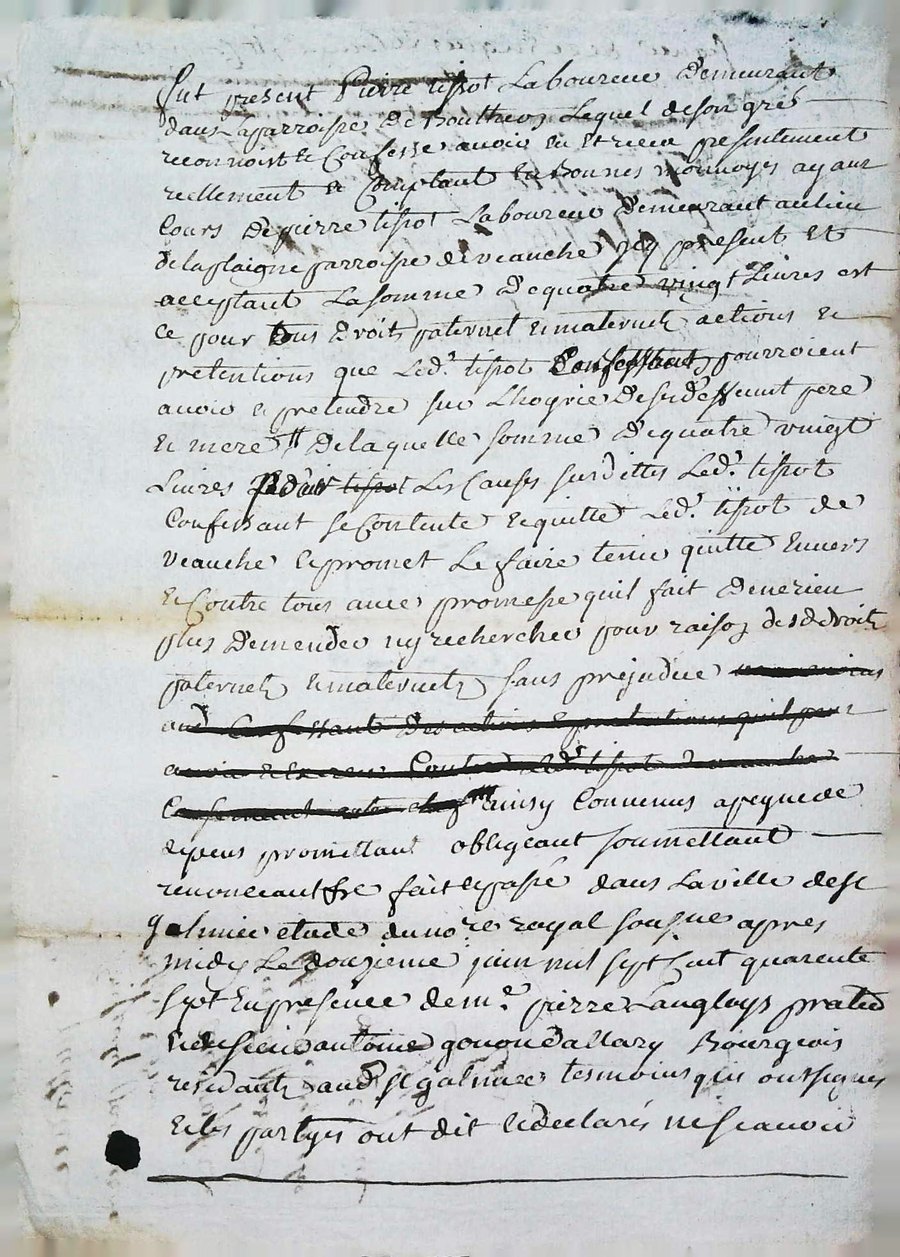 fut present Pierre tissot Laboureur Demeurant
dans La parroisse De Boutheon Lequel de son gré
reconnoist & Confesse avoir Eu Et receu presentement
reellement & Comptant En Bonnes monnoyes ayant
Cours De pierre tissot Laboureur Demeurant au lieu
de la plaigne parroisse de veauche icy present Et
acceptant La somme De quatre vingt Livres est
ce pour tous Droits paternel & maternels actions &
pretentions que Led.t tissot Confessant pourroient
avoir & pretendre sur L'hoyrie De ses deffunt pere
& mere De la quelle somme De quatre vingt
Livres tissot Les Causes sus dittes Led.t tissot
Confessant se Contente & quitte Led.t tissot de
veauche & promet Le faire tenir quitte Envers
& Contre tous avec promesse quil fait De ne rien
plus Demender ny rechercher pour raison desd droits
paternels & maternels sans prejudice
aud Confessant Des actions & pretentions quil peut
avoir & Exercer Contre Led.t tissot De veauche
Ainsy Convenus a peyne de
depens promettant obligeant soumettant
renonceant fre fait & passé dans La ville de st
galmier etude du no.re royal sousne apres
midy Le douzieme juin mil sept Cent quarente
sept En presence de m.e pierre Langloys praticien
& de sieur antoine gonon Dallary Bourgeois
residants aud st galmier tesmoins qui ont signes
& les partyes ont dit & declarés ne scavoir